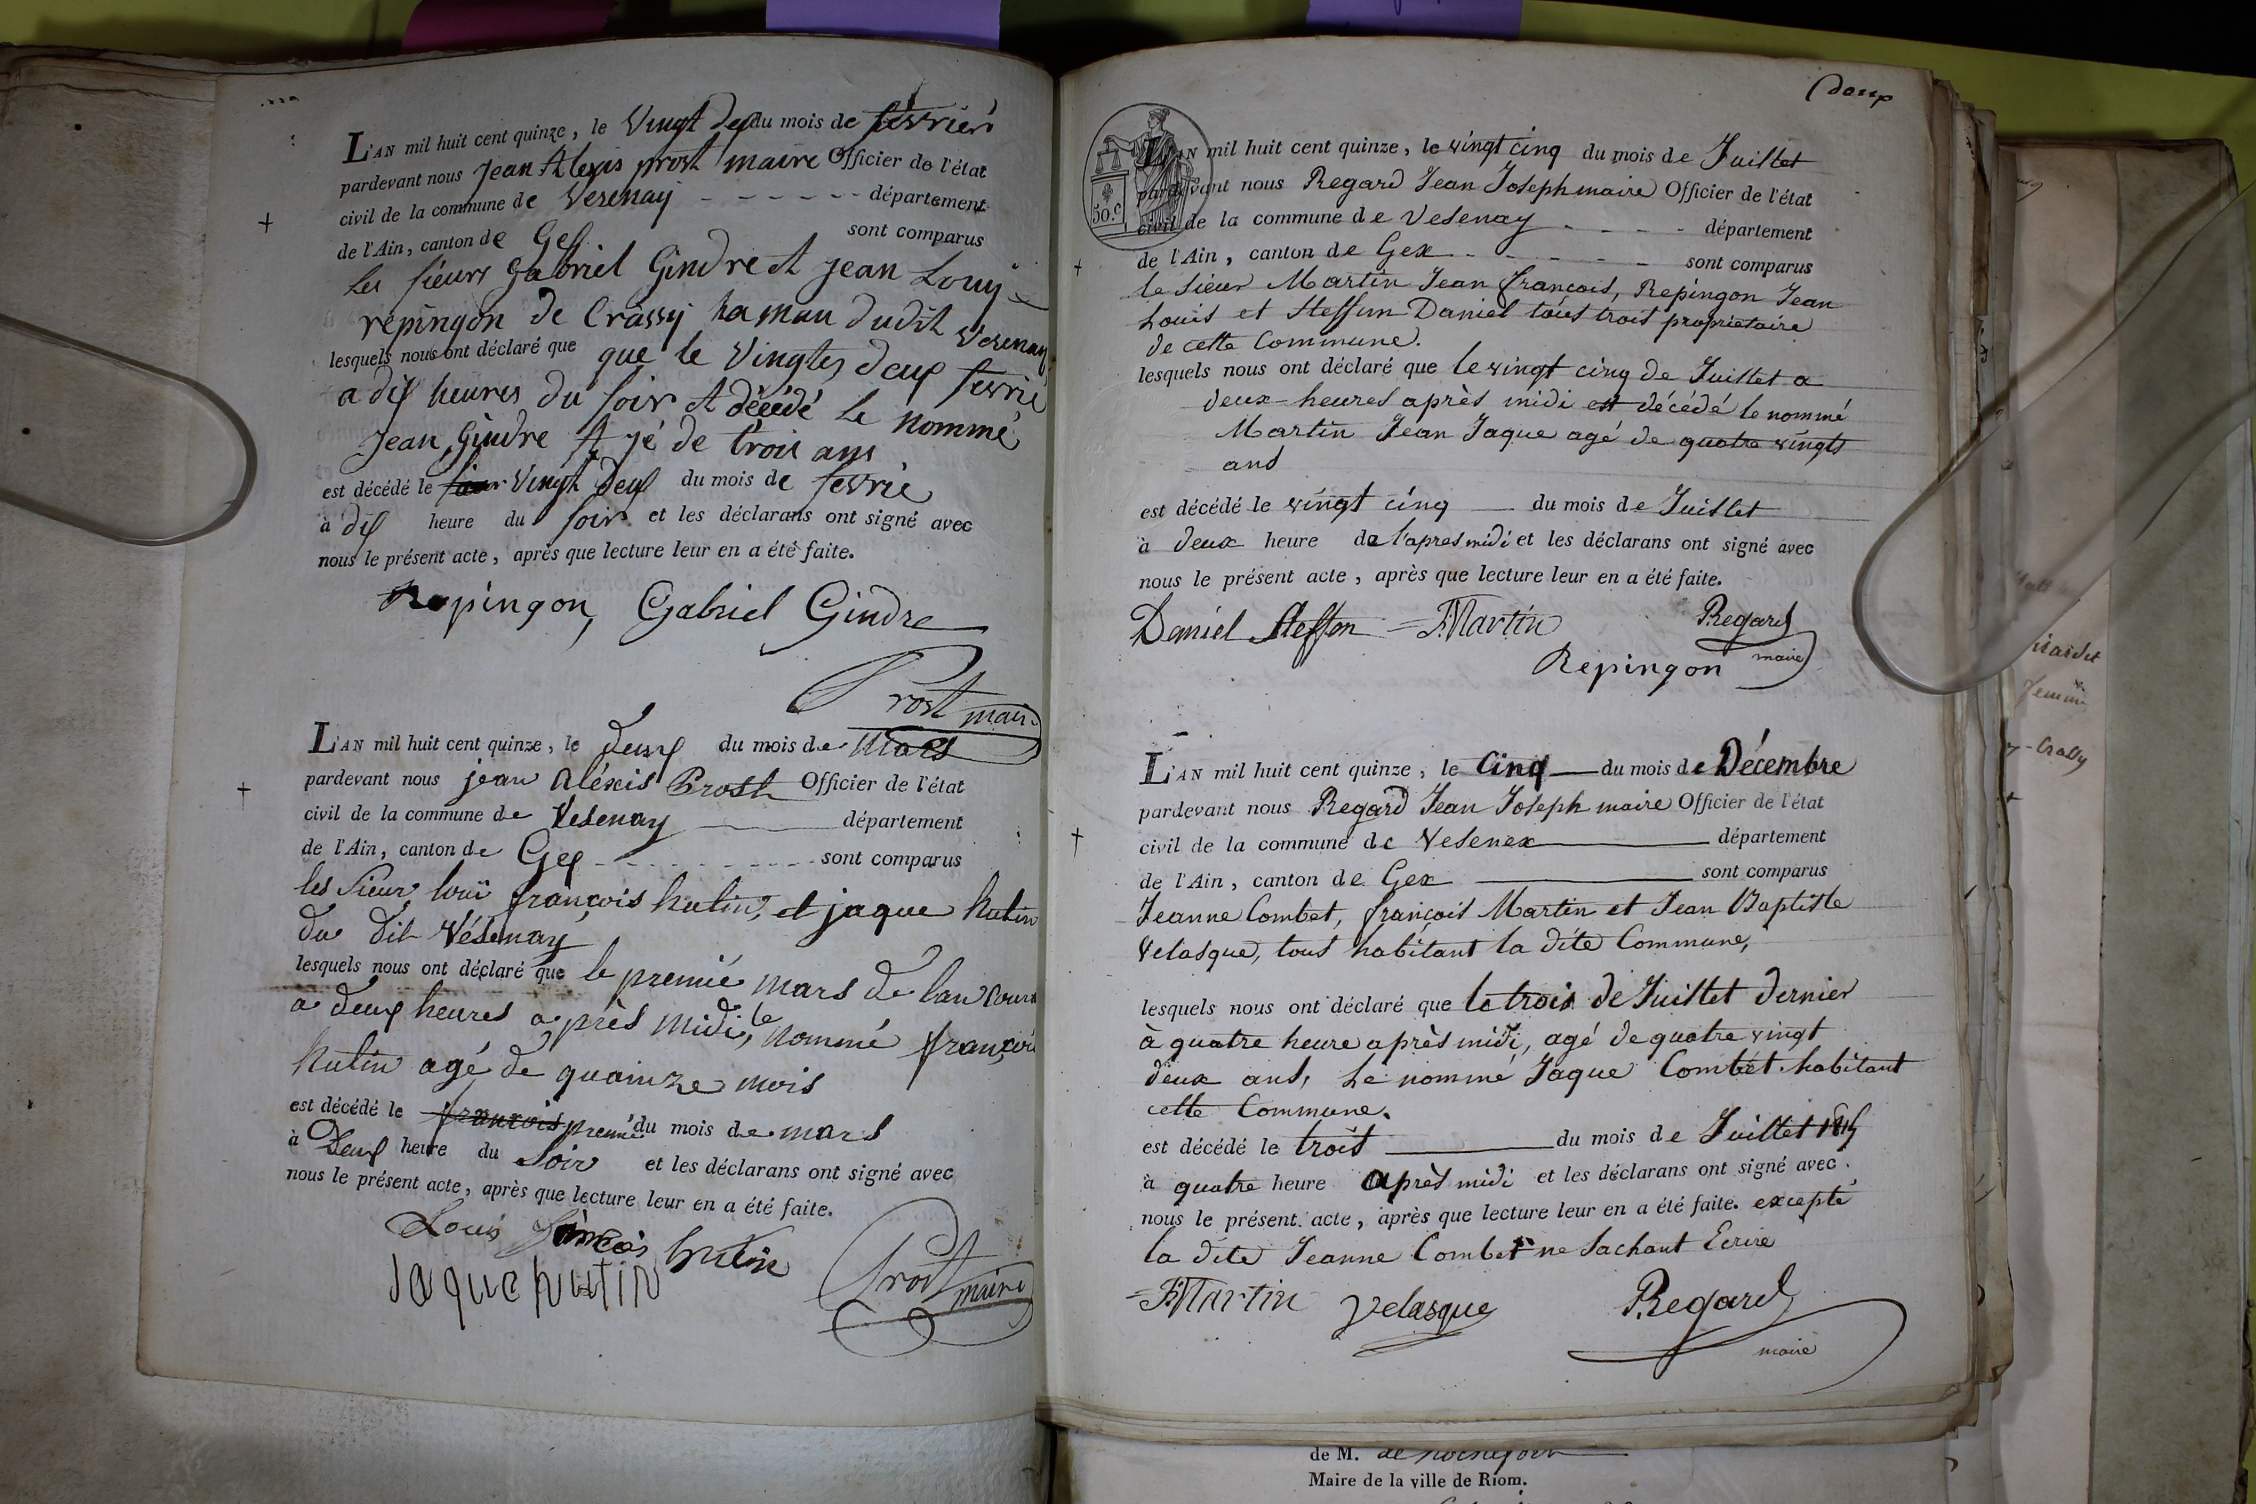 L'AN mil huit cent quinze, le Vingt deux du mois de fevrier
pardevant nous Jean Alexis prost maire Officier de l'état
civil de la commune de Vesenay - - - - - - département
de l'Ain, canton de Gex sont comparus
Les sieurs Gabriel Gindre et Jean Louy
repingon de Crassy hamau dudit Vesenay
lesquels nous ont déclaré que que le Vingtes deux fevrie
a dix heures du soir et décédé Le nommé
Jean Gindre A jé de trois ans
est décédé le Vingt deux du mois de fevrie
à dix heure du soir et les déclarans ont signé avec
nous le présent acte, après que lecture leur en a été faite.
Repingon, Gabriel Gindre
Prost maire
L'AN mil huit cent quinze, le deux du mois de Mars
pardevant nous jean Aléxis Prost Officier de l'état
civil de la commune de Vesenay département
de l'Ain, canton de Gex - - - - - - sont comparus
les Sieur, louï françois hutin, et jaque hutin
du dit Vésenay
lesquels nous ont déclaré que le premié mars de lan courant
a deux heures après midi, le nommé françoi
hutin agé de quainze mois
est décédé le françois premié du mois de mars
à Deux heure du Soir et les déclarans ont signé avec
nous le présent acte, après que lecture leur en a été faite.
Louis françois hutin
Jaque hutin
Prost maire
doux
50.c
L'AN mil huit cent quinze, le vingt cinq du mois de Juillet
pardevant nous Regard Jean Joseph maire Officier de l'état
civil de la commune de Vesenay - - - - département
de l'Ain, canton de Gex - - - - - - sont comparus
le Sieur Martin Jean françois, Repingon Jean
Louis et Steffon Daniel tous trois propriétaire
de cette Commune.
lesquels nous ont déclaré que le vingt cinq de Juillet a
deux heures après midi est décédé le nommé
Martin Jean Jaque agé de quatre vingts
ans
est décédé le vingt cinq du mois de Juillet
à deux heure de l'apres midi et les déclarans ont signé avec
nous le présent acte, après que lecture leur en a été faite.
Daniel Steffon JMartin Regard
Repingon maire
L'AN mil huit cent quinze, le Cinq du mois de Décembre
pardevant nous Regard Jean Joseph maire Officier de l'état
civil de la commune de Vesenex département
de l'Ain, canton de Gex sont comparus
Jeanne Combet, françois Martin et Jean Baptiste
Velasque, tous habitant la dite Commune,
lesquels nous ont déclaré que le trois de Juillet dernier
à quatre heure après midi, agé de quatre vingt
deux ans, Le nommé Jaque Combet habitant
cette Commune.
est décédé le trois du mois de Juillet 1815
à quatre heure après midi et les déclarans ont signé avec
nous le présent acte, après que lecture leur en a été faite. excepté
la dite Jeanne Combet ne Sachant Ecrire
JMartin Velasque Regard
maire
femme
Crassy
de M. de
Maire de la ville de Riom.